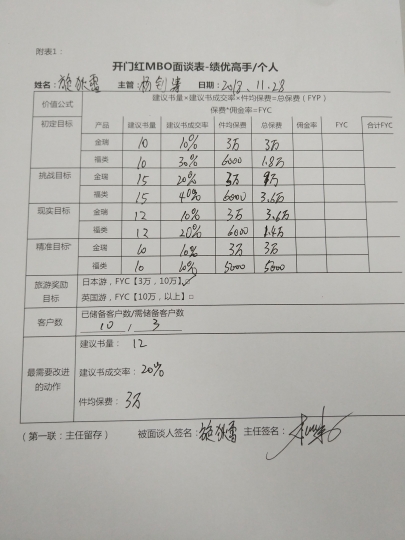 附表1：
开门红MBO面谈表-绩优高手/个人
姓名： 主管： 日期：2018.11.28
价值公式 建议书量×建议书成交率×件均保费=总保费（FYP）
保费*佣金率=FYC
初定目标 产品 建议书量 建议书成交率 件均保费 总保费 佣金率 FYC 合计FYC
金瑞 10 10% 3万 3万
福类 10 30% 6000 1.8万
挑战目标 金瑞 15 20% 3万 9万
福类 15 40% 6000 3.6万
现实目标 金瑞 12 10% 3万 3.6万
福类 12 20% 6000 1.4万
精准目标* 金瑞 10 10% 3万 3万
福类 10 10% 5000 5000
旅游奖励目标 日本游，FYC【3万，10万】☑
英国游，FYC【10万，以上】□
客户数 已储备客户数/需储备客户数
10 / 3
最需要改进的动作 建议书量： 12
建议书成交率：20%
件均保费： 3万
（第一联：主任留存） 被面谈人签名： 主任签名：